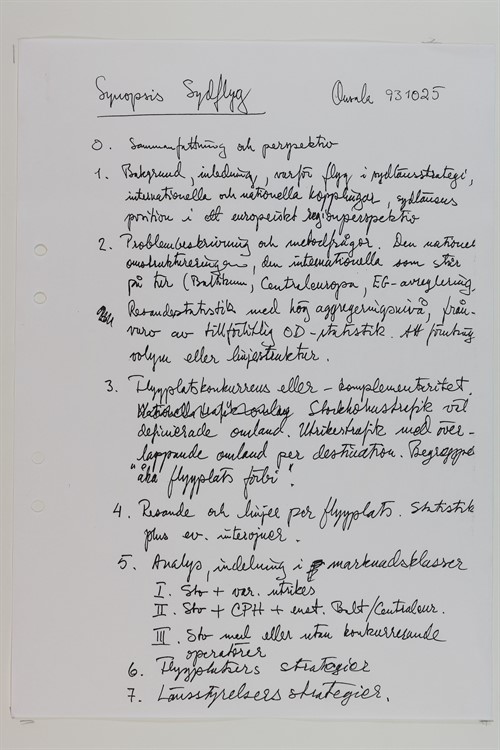 Synopsis Sydflyg Onsala 931025
0. Sammanfattning och perspektiv
1. Bakgrund, inledning, varför flyg i sydlänsstrategi,
internationella och nationella kopplingar, sydlänens
position i ett europeiskt regionperspektiv
2. Problembeskrivning och metodfrågor. Den nationel
omstruktureringen, den internationella som står
på tur (Baltikum, Centraleuropa, EG-avreglering.
Resandestatistik med hög aggregeringsnivå, från-
varo av tillförlitlig OD-statistik. Att
volym eller linjestruktur.
3. Flygplatskonkurrens eller -komplementaritet.
Stockholmstrafik väl
definierade omland. Utrikestrafik med över-
lappande omland per destination. Begreppet
"åka flygplats förbi".
4. Resande och linjer per flygplats. Statistik
plus ev. intervjuer.
5. Analys, indelning i marknadsklasser
I. Sto + var. utrikes
II. Sto + CPH + enst. Balt/Centraleur.
III. Sto med eller utan konkurrerande
operatörer
6. Flygplatsers strategier
7. Länsstyrelsers strategier.